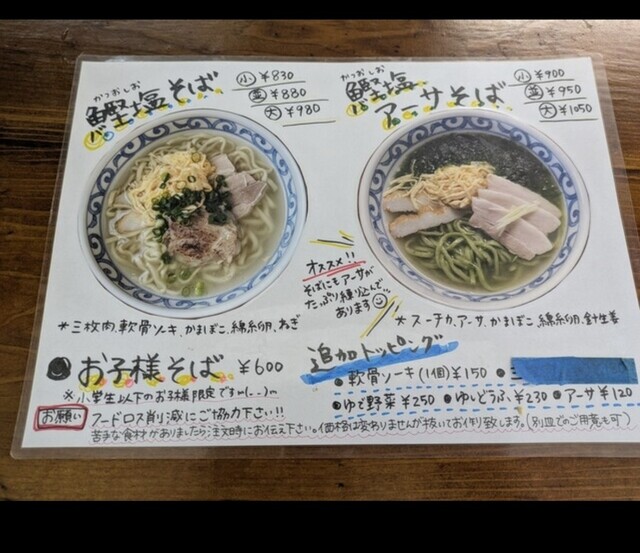 かつおしお
鰹塩そば
小 ¥830
並 ¥880
大 ¥980
かつおしお
鰹塩
アーサそば
小 ¥900
並 ¥950
大 ¥1050
オススメ!!
そばにもアーサが
たっぷり練り込んで
あります
*三枚肉、軟骨ソーキ、かまぼこ、錦糸卵、ねぎ
*スーチカ、アーサ、かまぼこ、錦糸卵、針生姜
●お子様そば ¥600
*小学生以下のお子様限定ですm(..)m
追加トッピング
●軟骨ソーキ(1個)¥150
●ゆで野菜¥250 ●ゆしどうふ¥230 ●アーサ¥120
お願い フードロス削減にご協力下さい!!
苦手な食材がありましたら注文時にお伝え下さい。価格は変わりませんが抜いてお作り致します。(別皿でのご用意も可)